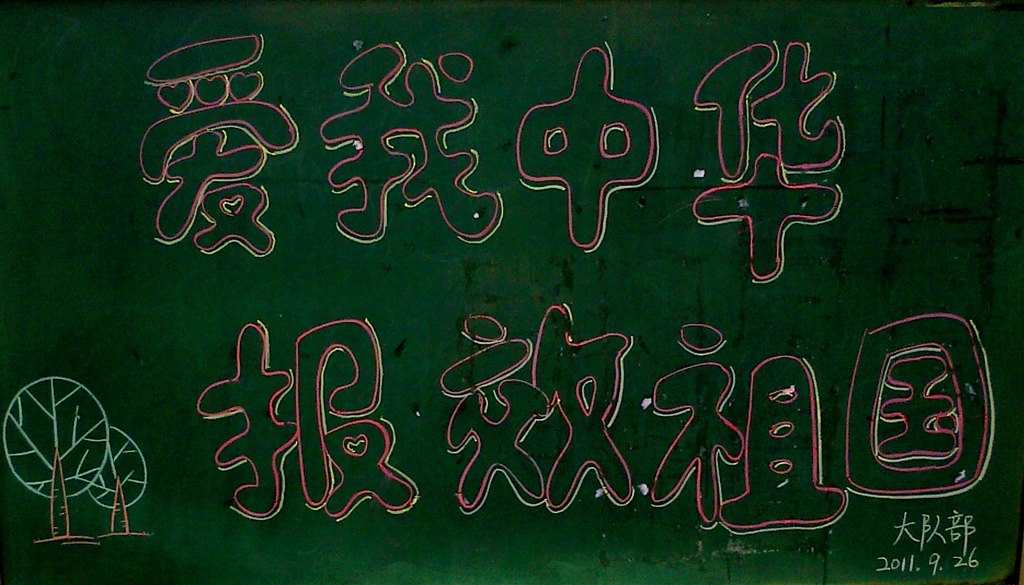 爱我中华
报效祖国
大队部
2011.9.26